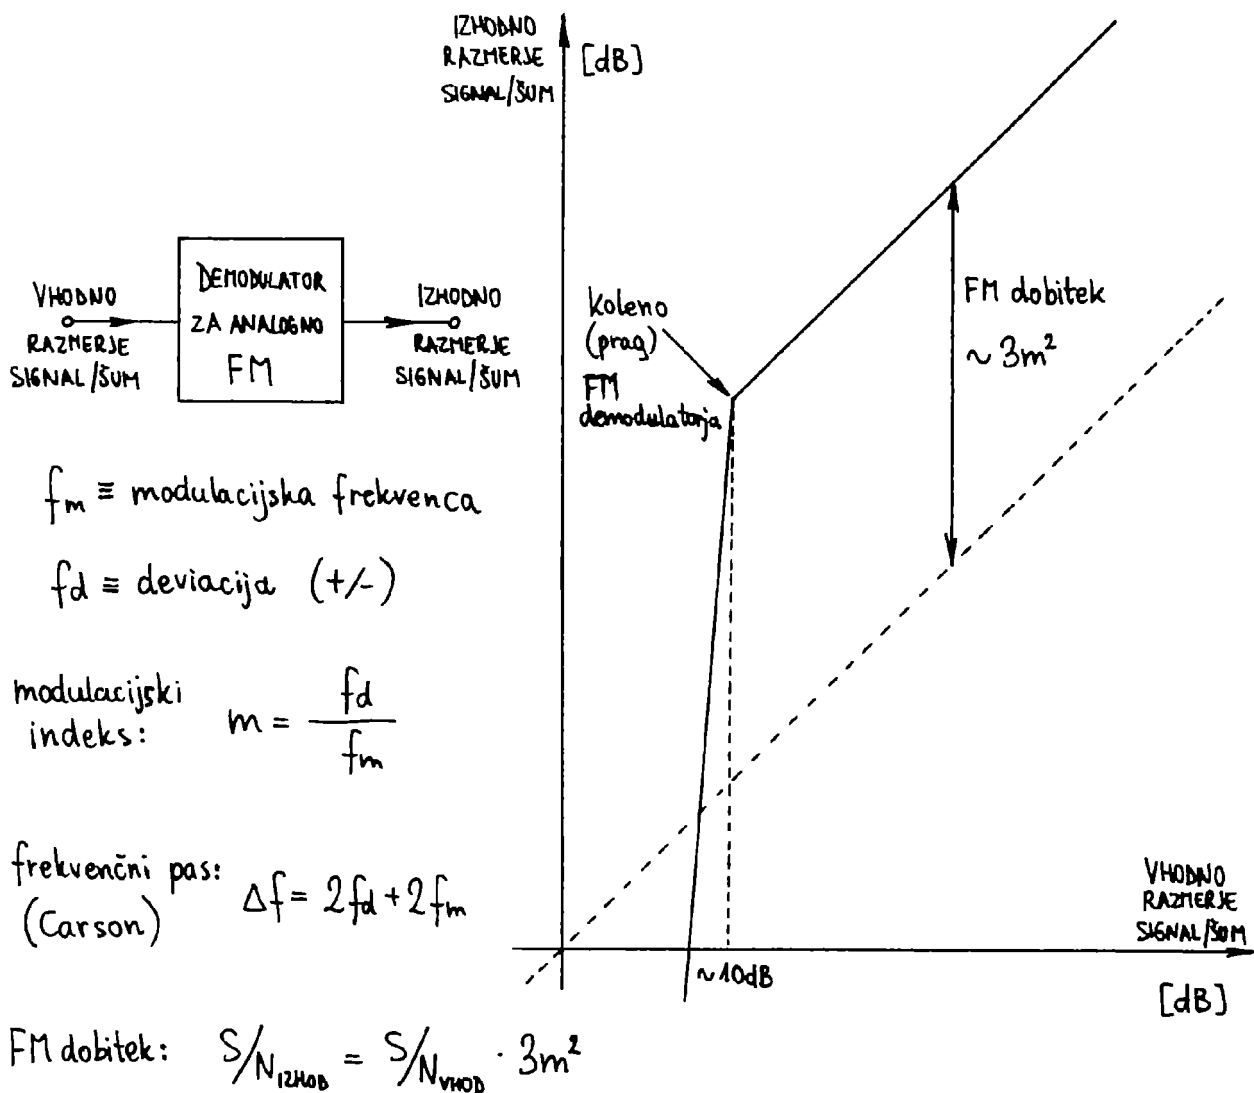 IZHODNO
RAZMERJE
SIGNAL/ŠUM
[dB]
VHODNO
RAZMERJE
SIGNAL/ŠUM
DEMODULATOR
ZA ANALOGNO
FM
IZHODNO
RAZMERJE
SIGNAL/ŠUM
koleno
(prag)
FM
demodulatorja
FM dobitek
~ 3m²
fm ≡ modulacijska frekvenca
fd ≡ deviacija (+/-)
modulacijski
indeks:
m = fd / fm
frekvenčni pas:
(Carson)
Δf = 2fd + 2fm
~10dB
VHODNO
RAZMERJE
SIGNAL/ŠUM
[dB]
FM dobitek: S/N IZHOD = S/N VHOD · 3m²